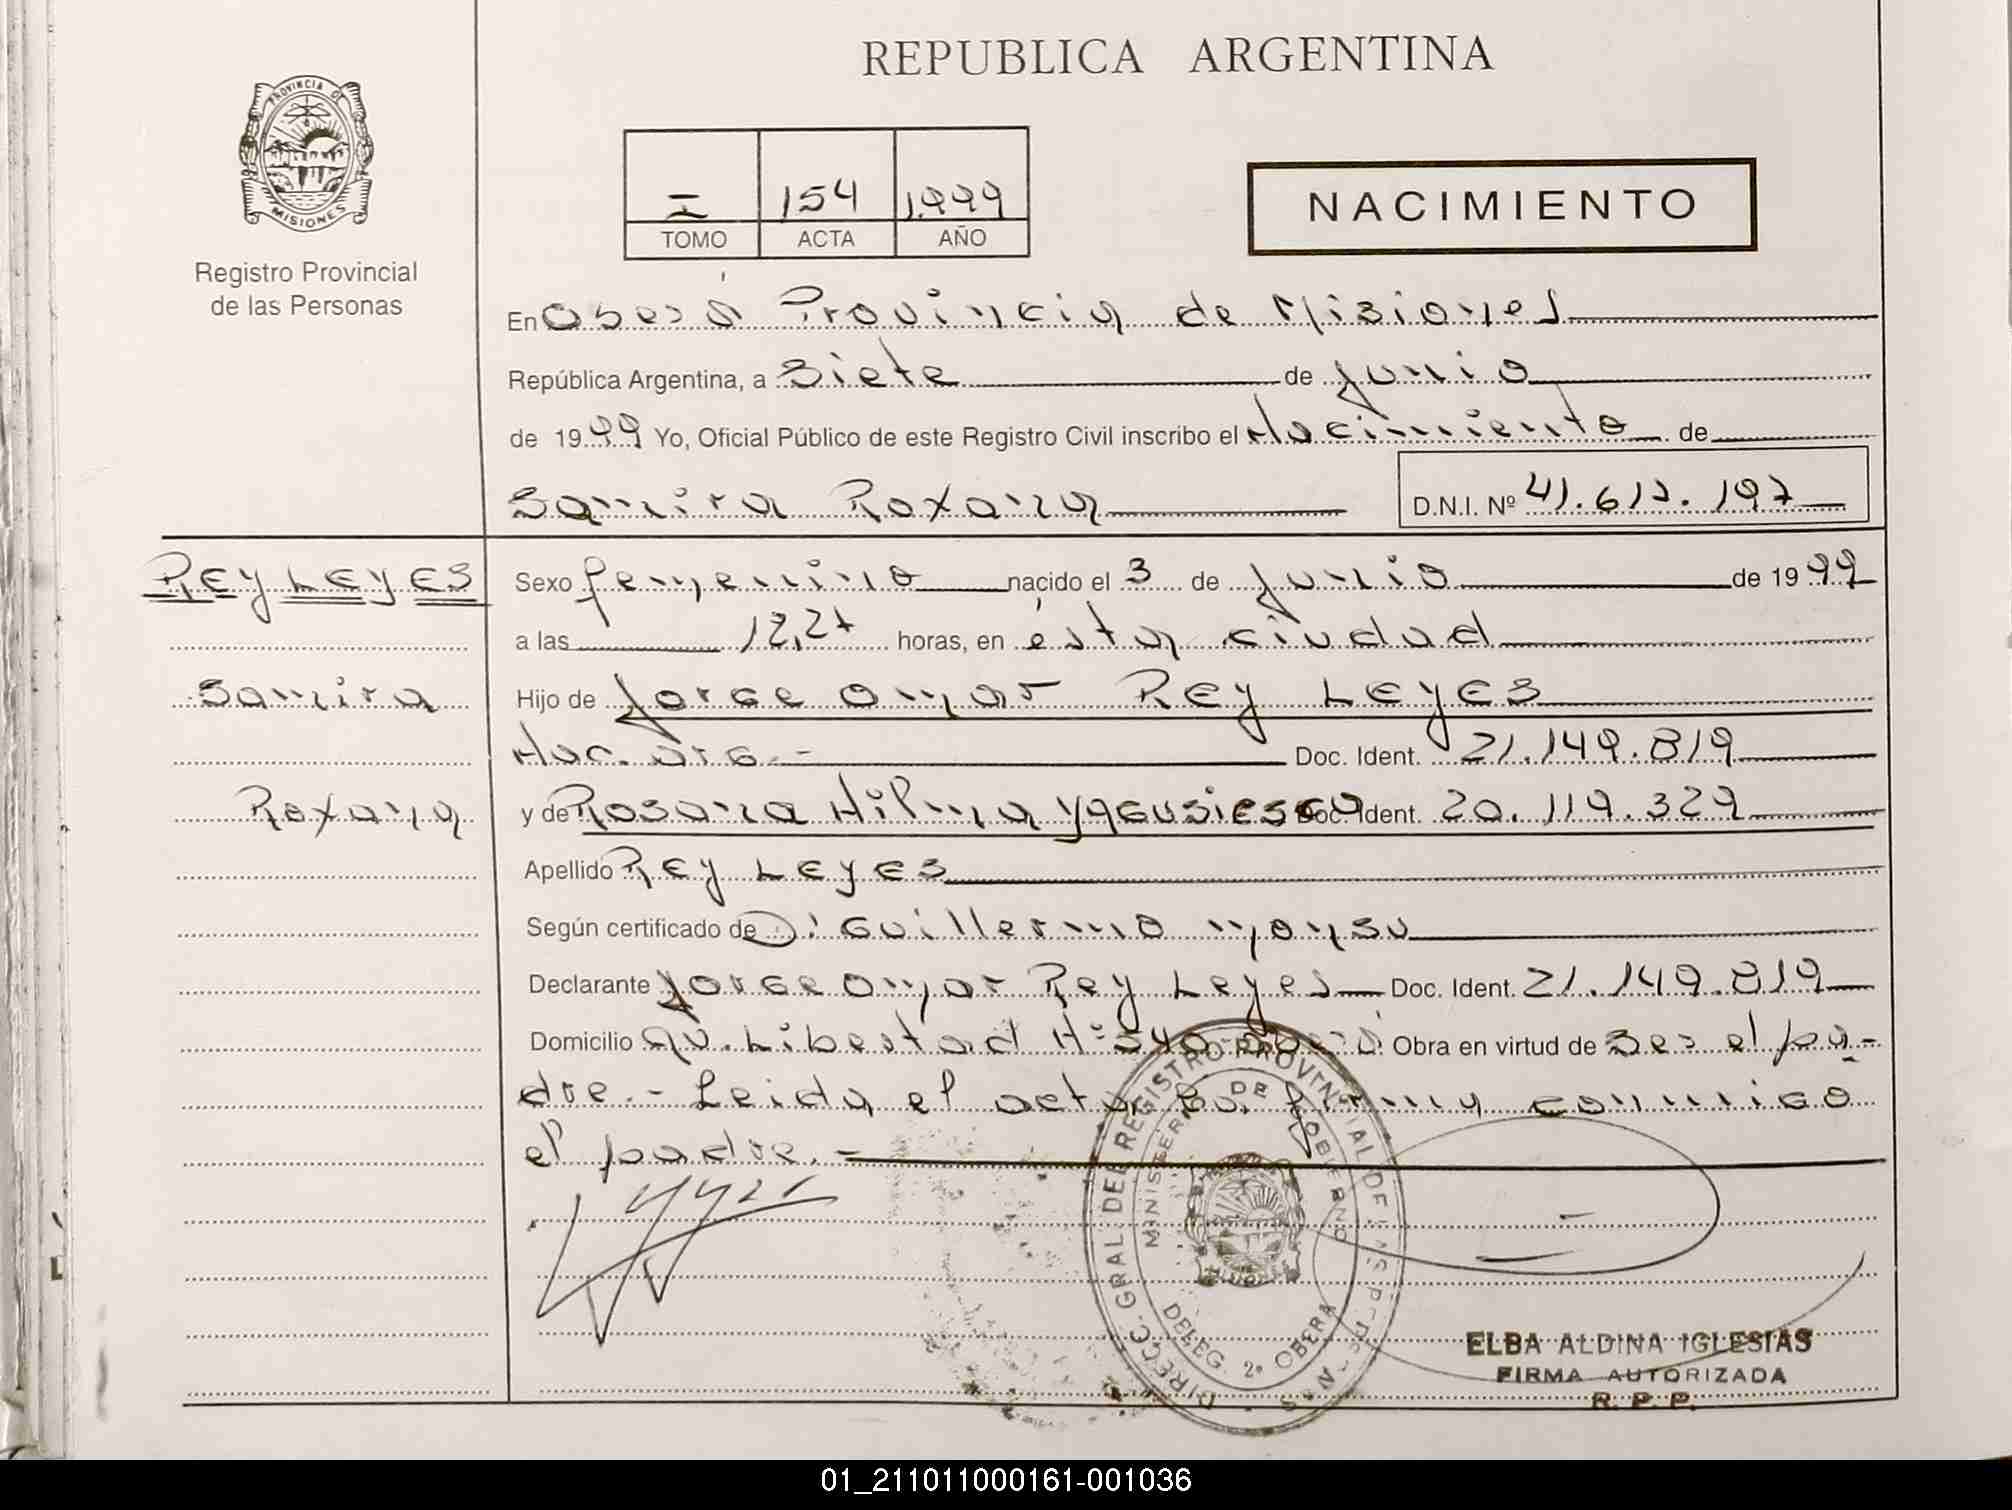 REPUBLICA ARGENTINA
PROVINCIA DE
MISIONES
Registro Provincial
de las Personas
I 154 1.999
TOMO ACTA AÑO
NACIMIENTO
En Oberá Provincia de Misiones
República Argentina, a Siete de Junio
de 1999 Yo, Oficial Público de este Registro Civil inscribo el Nacimiento de
Samira Roxana D.N.I. Nº 41.617.197
REY LEYES Sexo femenino nacido el 3 de Junio de 1999
a las 12,27 horas, en ésta ciudad
Samira Hijo de Jorge Omar REY LEYES
Nac. Arg.- Doc. Ident. 21.149.819
Roxana y de Rosana Hilma Doc. Ident. 20.119.329
Apellido REY LEYES
Según certificado de D: Guillermo
Declarante Jorge Omar Rey Leyes Doc. Ident. 21.149.819
Domicilio Av. Libertad Nº 540 Oberá Obra en virtud de Ser el pa-
dre.- Leida el acta la firma conmigo
el padre.-
DIRECC. GRAL. DEL REGISTRO PROVINCIAL DE LAS PERSONAS
MINISTERIO DE GOBIERNO
DELEG. 2ª OBERA
ELBA ALDINA IGLESIAS
FIRMA AUTORIZADA
R. P. P.
01_211011000161-001036